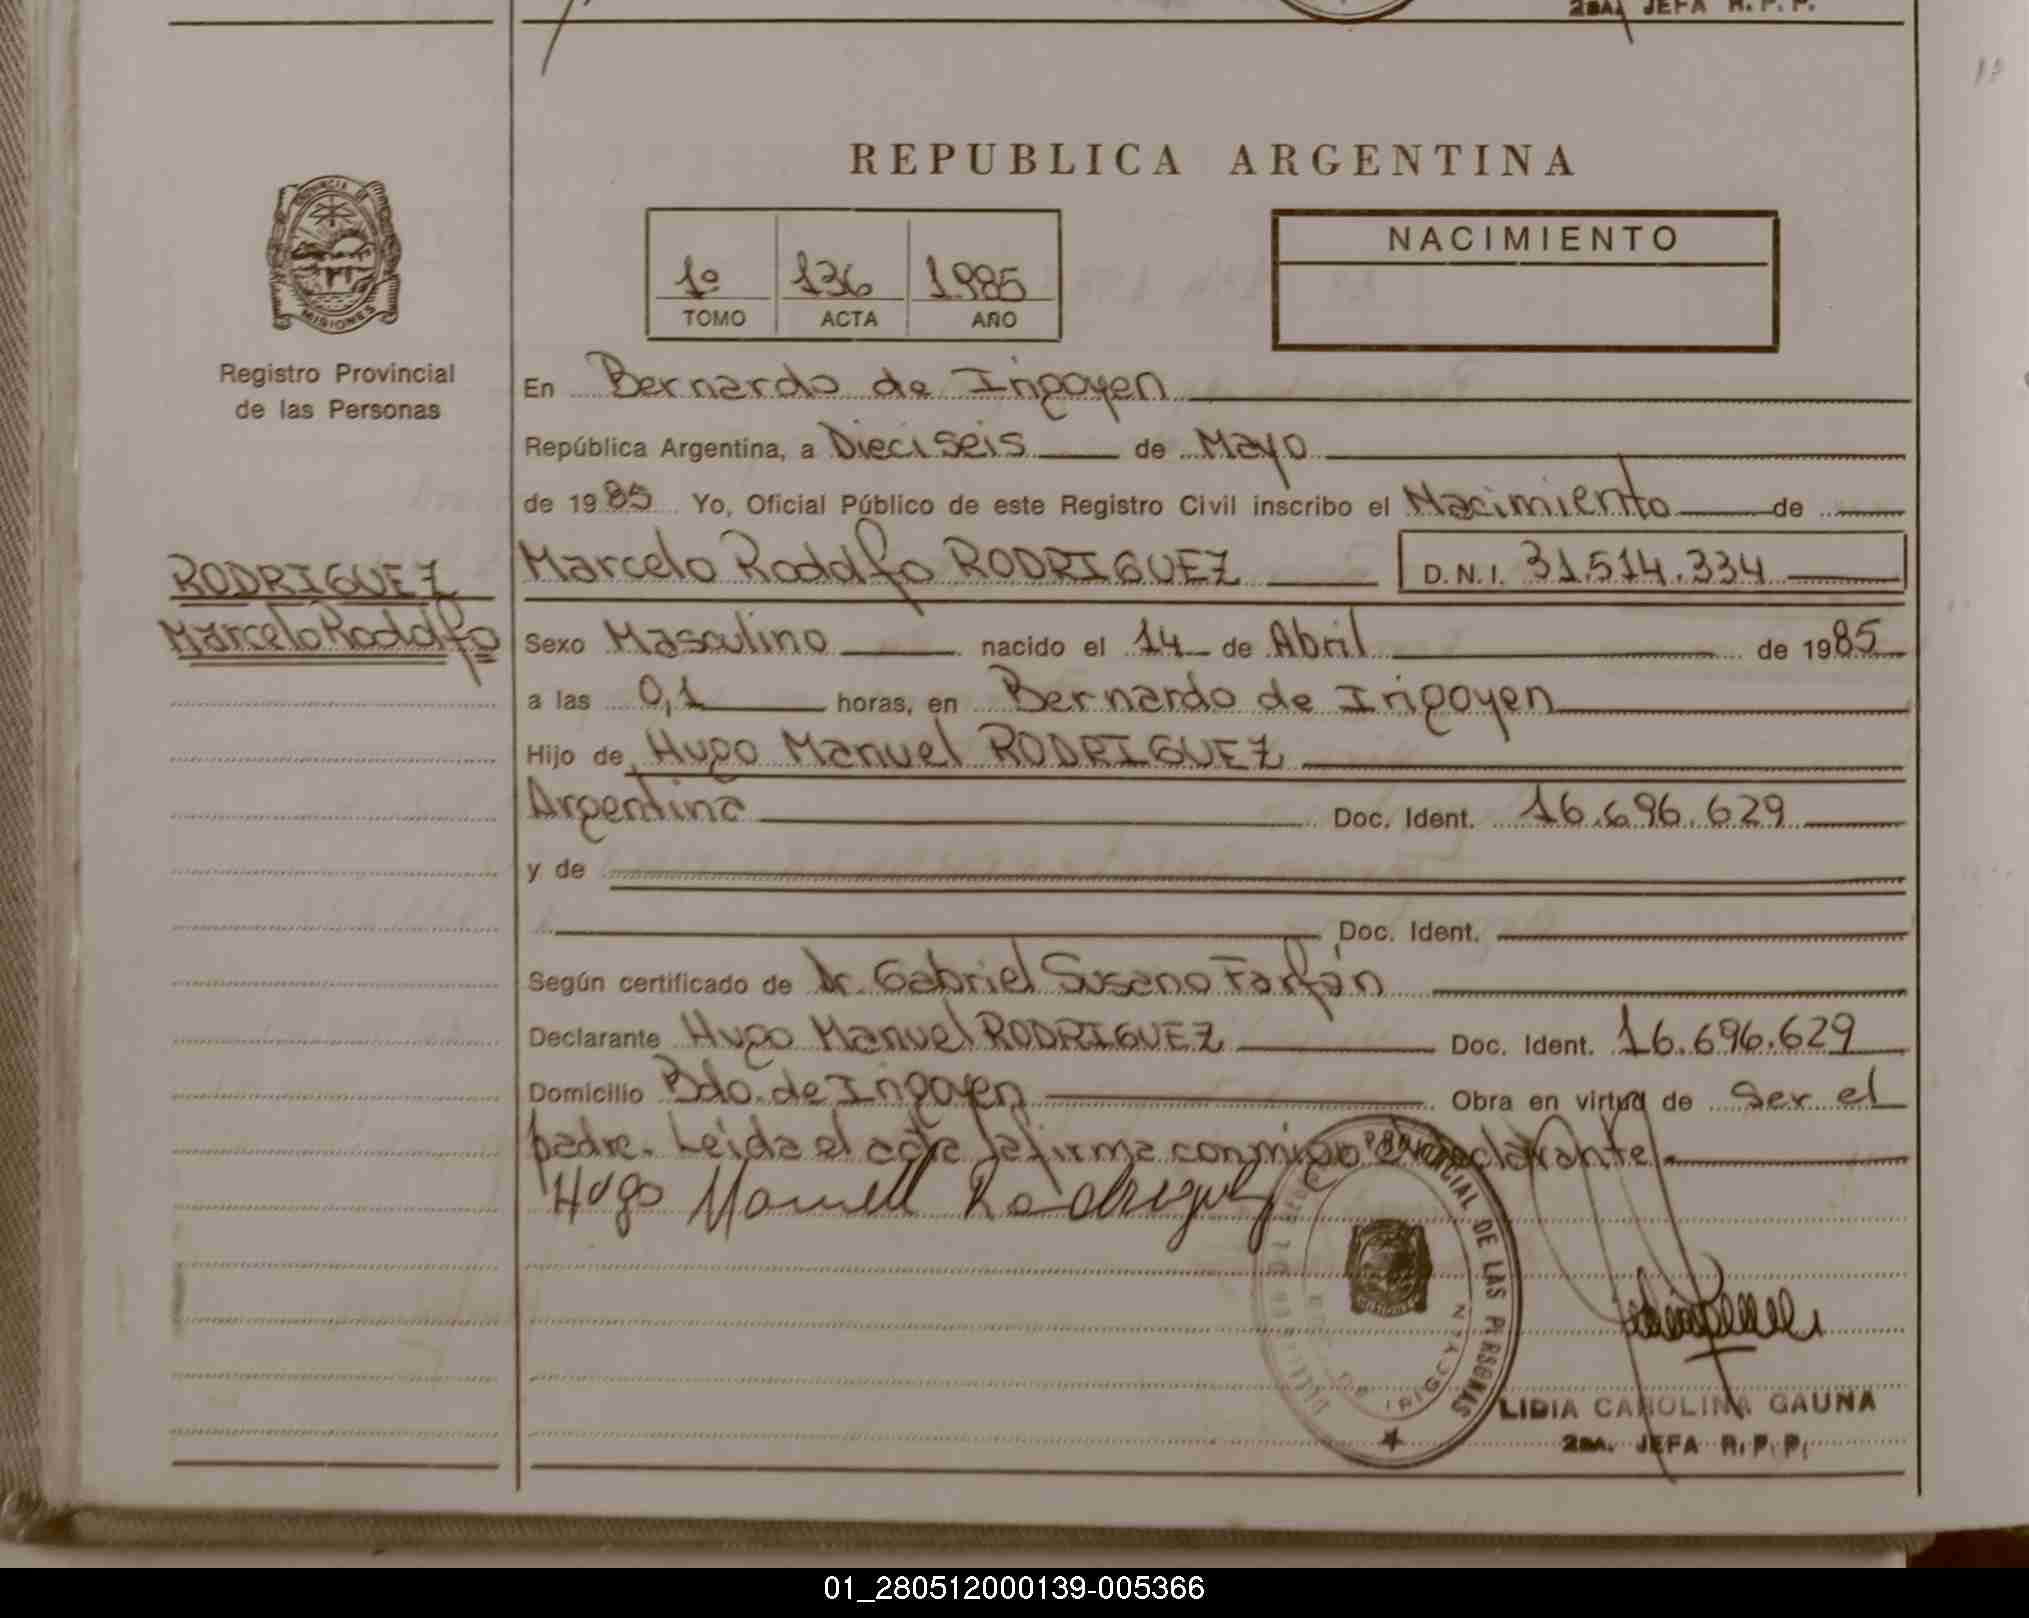 2DA. JEFA R. P. P.
REPUBLICA ARGENTINA
PROVINCIA DE
MISIONES
Registro Provincial
de las Personas
1º 136 1985
TOMO ACTA AÑO
NACIMIENTO
En Bernardo de Irigoyen
República Argentina, a Dieciseis de Mayo
de 1985 Yo, Oficial Público de este Registro Civil inscribo el Nacimiento de
RODRIGUEZ
Marcelo Rodolfo
Marcelo Rodolfo RODRIGUEZ D.N.I. 31.514.334
Sexo Masculino nacido el 14 de Abril de 1985
a las 0,1 horas, en Bernardo de Irigoyen
Hijo de Hugo Manuel RODRIGUEZ
Argentina Doc. Ident. 16.696.629
y de
Doc. Ident.
Según certificado de Dr. Gabriel Susano Farfán
Declarante Hugo Manuel RODRIGUEZ Doc. Ident. 16.696.629
Domicilio Bdo. de Irigoyen Obra en virtud de ser el
padre. Leida el acta la firma conmigo el declarante
Hugo Manuel Rodriguez
PROVINCIAL DE LAS PERSONAS
IRIGOYEN
LIDIA CAROLINA GAUNA
2DA. JEFA R. P. P.
01_280512000139-005366